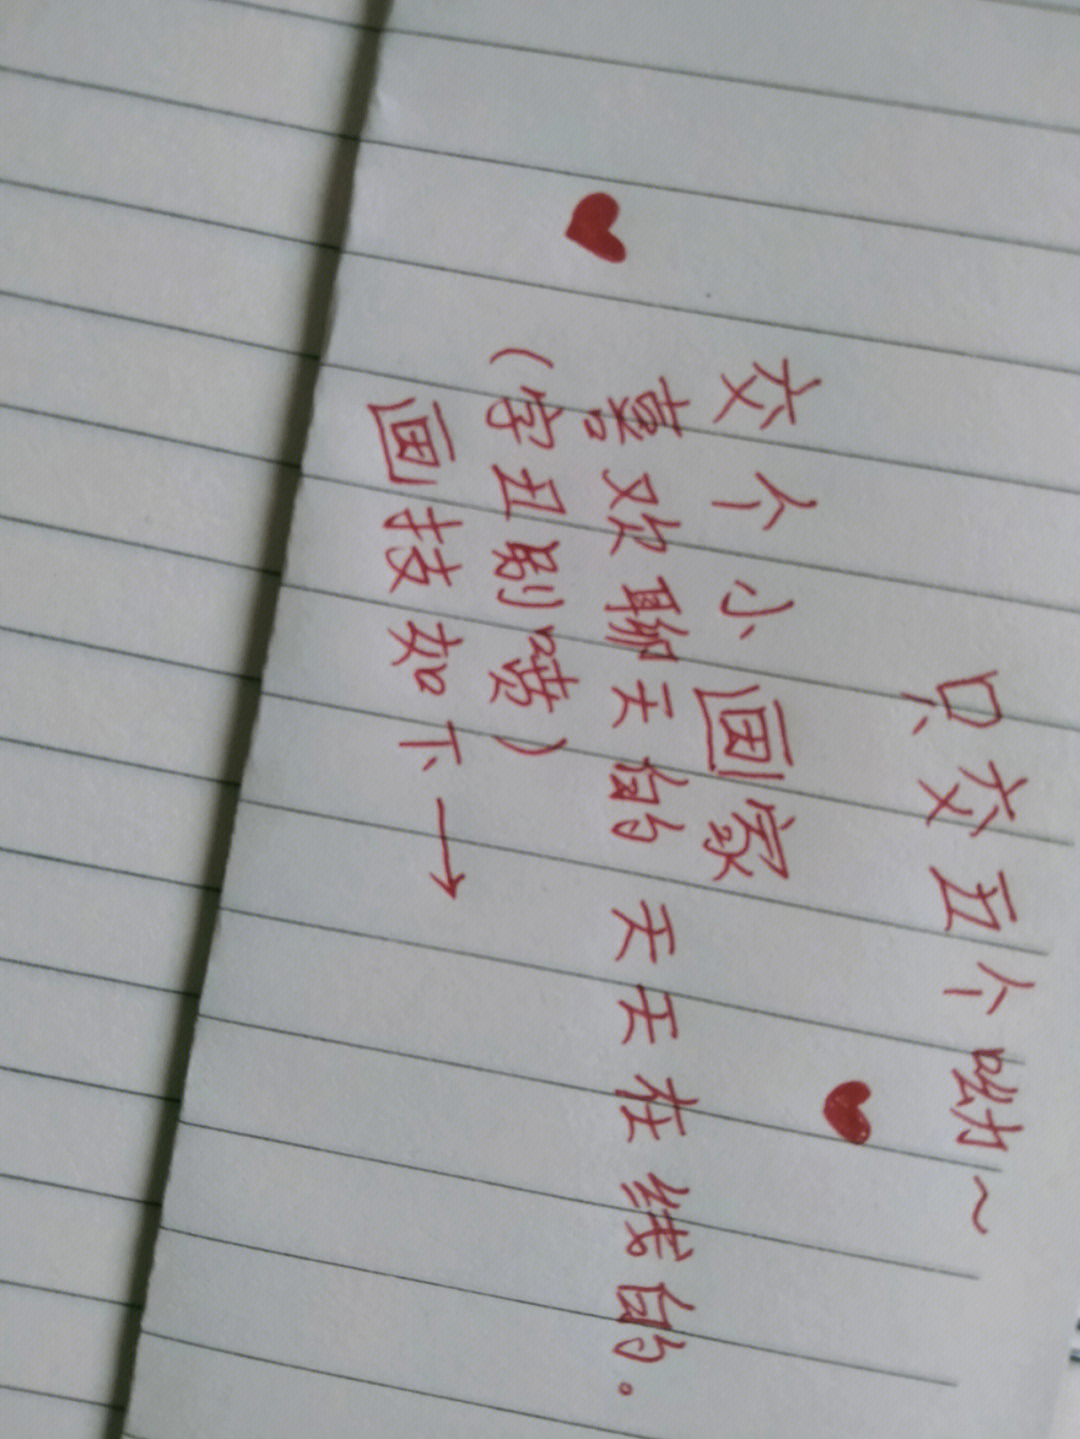 只交五个呦~
交个小画家
喜欢聊天的 天天在线的.
(字丑别喷)
画技如下→